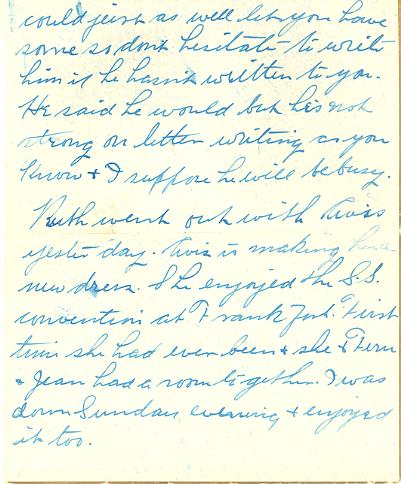 could just as well let you have
some so don't hesitate to write
him if he hasn't written to you.
He said he would but he's not
strong on letter writing as you
know + I suppose he will be busy.
Ruth went out with Avis
yesterday. Avis is making her a
new dress. She enjoyed the S.S.
convention at Frankfort. First
time she had ever been + she + Fern
+ Jean had a room together. I was
down Sunday evening + enjoyed
it too.